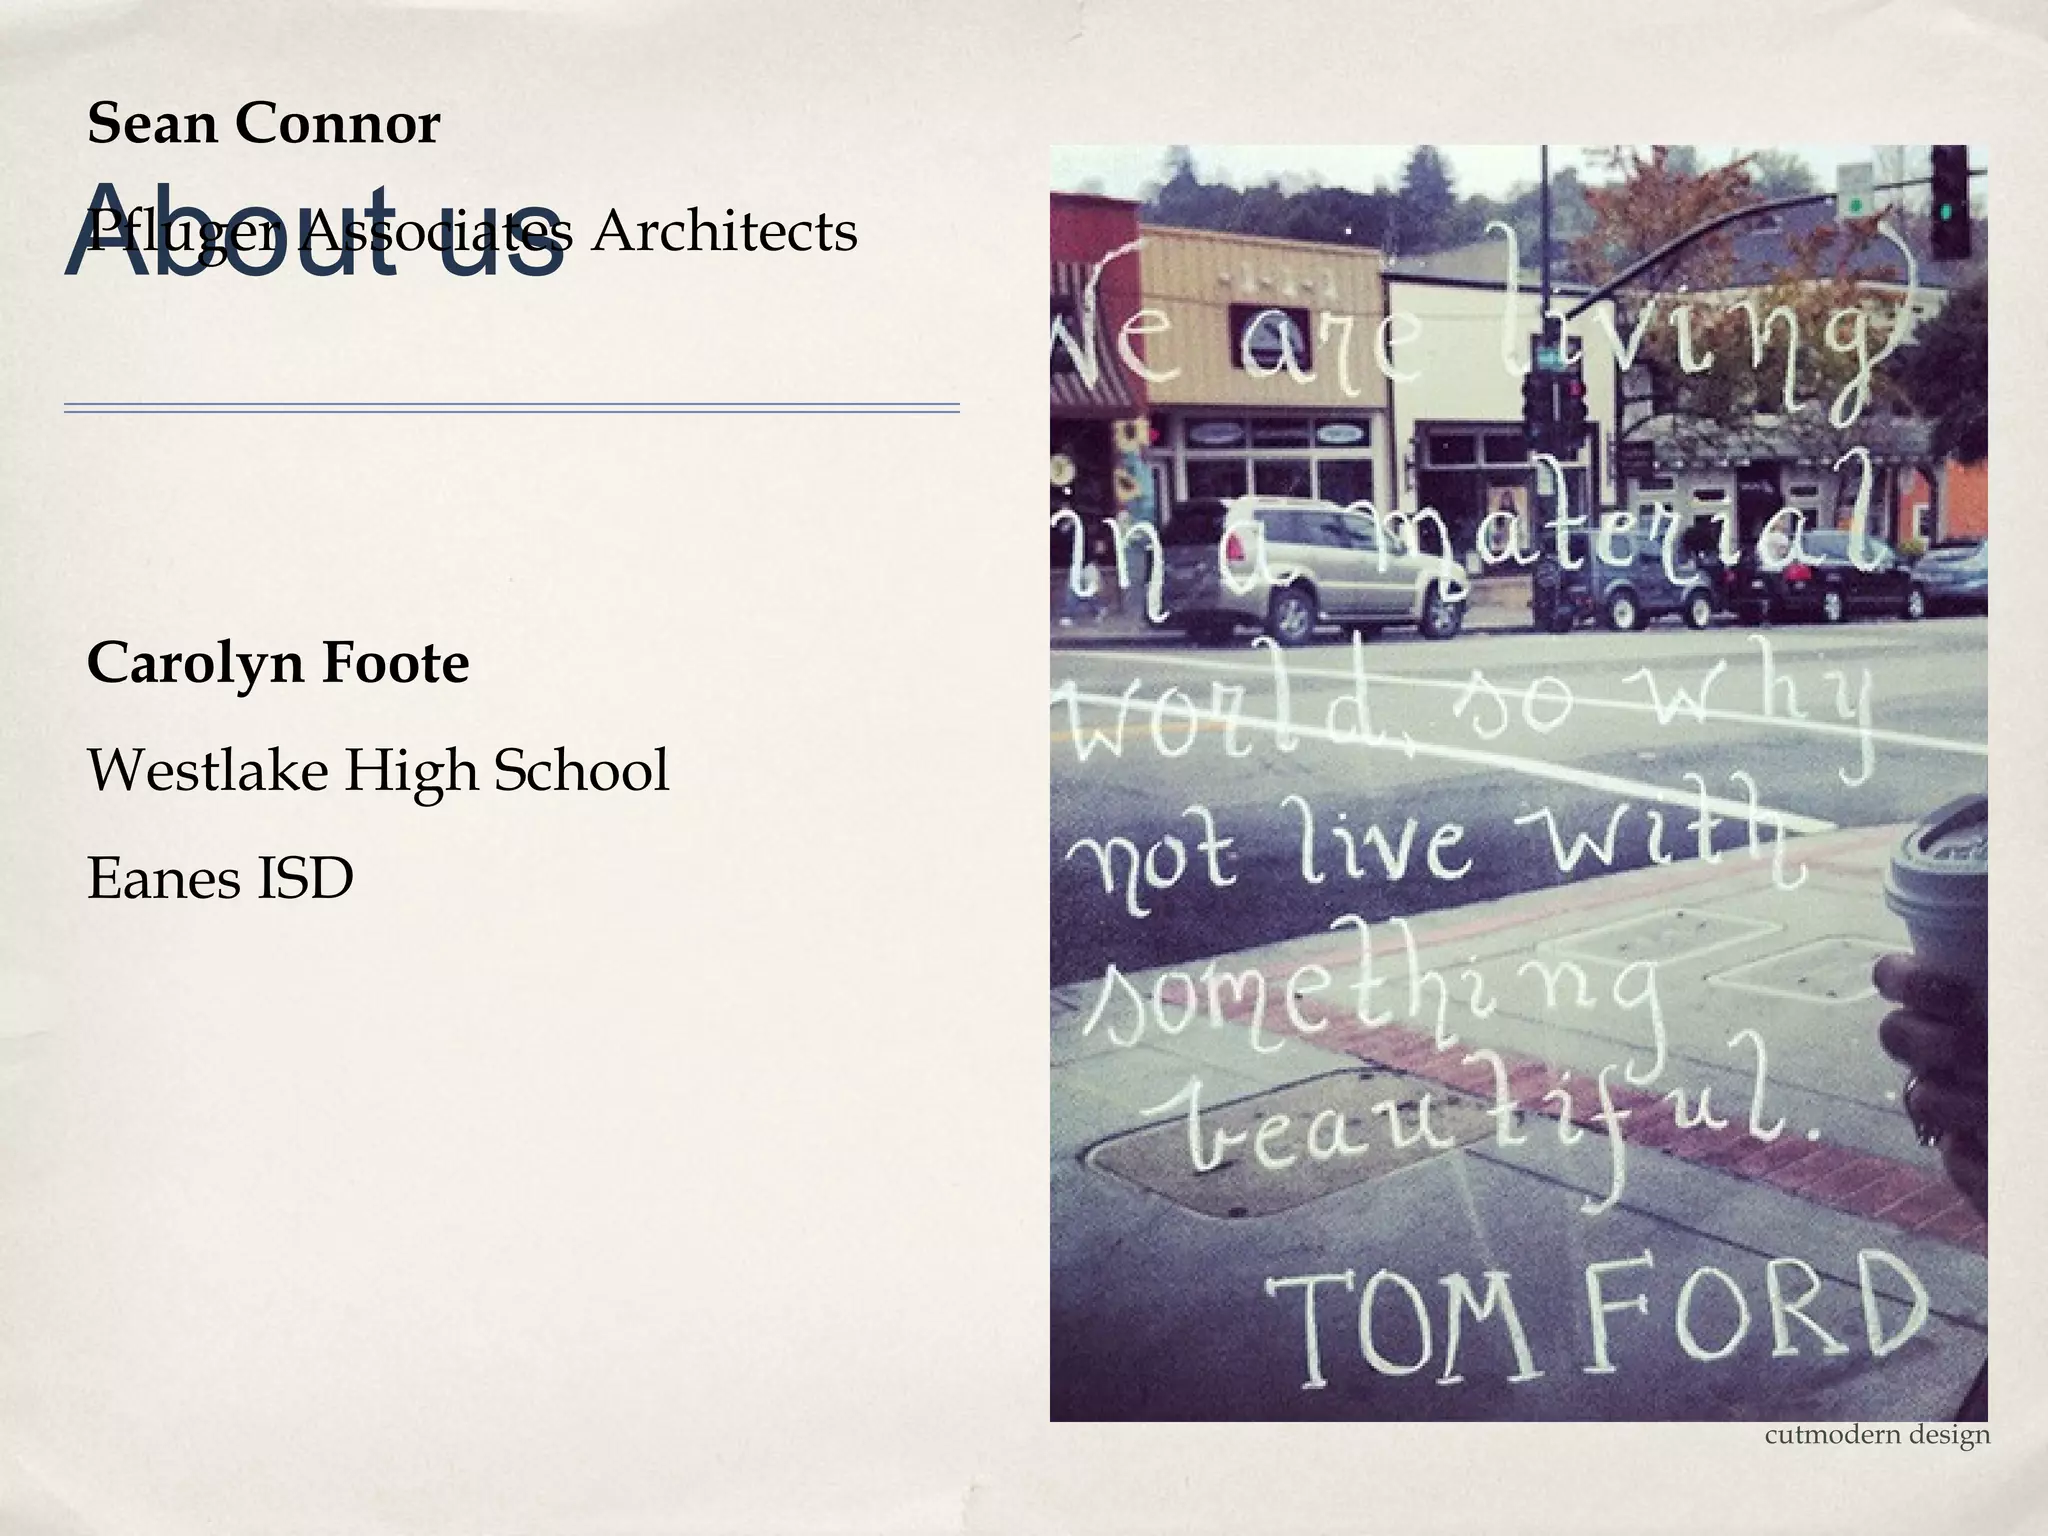 Sean Connor
About us
Pfluger Associates Architects
Carolyn Foote
Westlake High School
Eanes ISD
We are living
in a material
world, so why
not live with
something
beautiful.
TOM FORD
cutmodern design